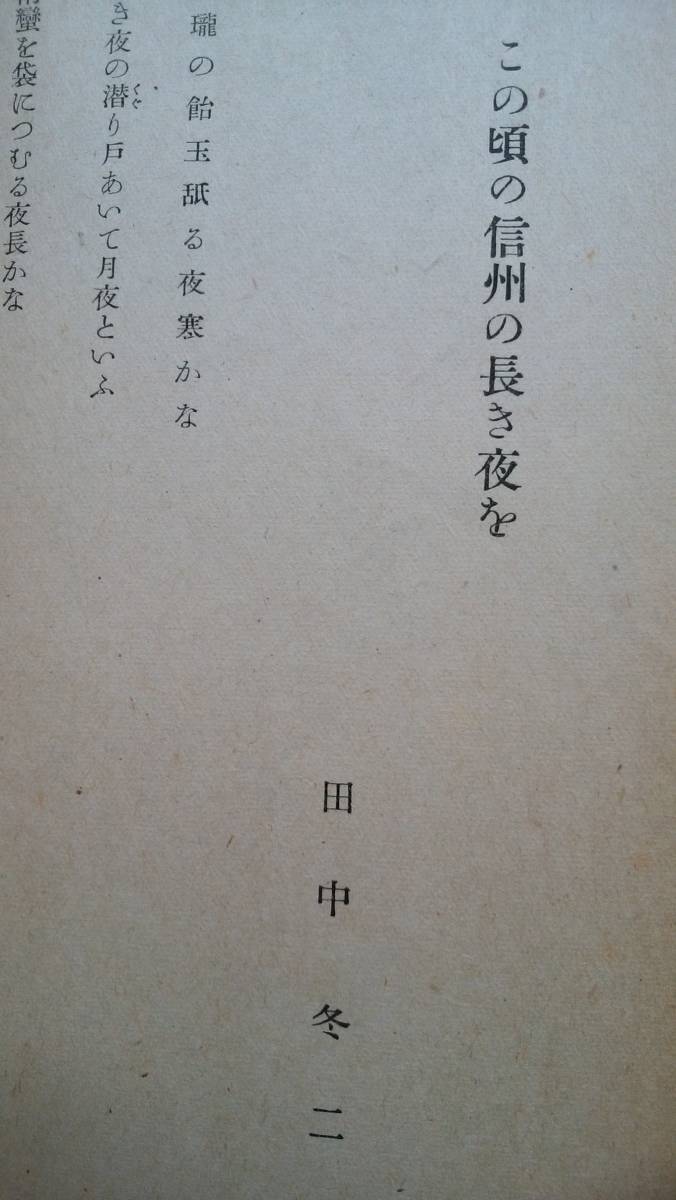 この頃の信州の長き夜を
田中冬二
瓏の飴玉舐る夜寒かな
き夜の潜り戸あいて月夜といふ
くぐ
蠻を袋につむる夜長かな